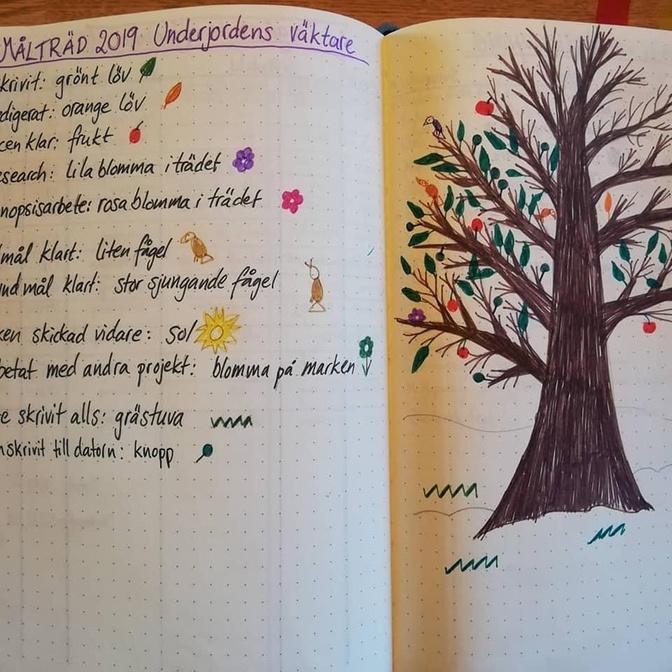 MÅLTRÄD 2019 Underjordens väktare
krivit: grönt löv
digerat: orange löv
cen klar: frukt
esearch: lila blomma i trädet
nopsisarbete: rosa blomma i trädet
mål klart: liten fågel
und mål klart: stor sjungande fågel
ken skickad vidare: sol
betat med andra projekt: blomma på marken
e skrivit alls: grästuva
nskrivit till datorn: knopp